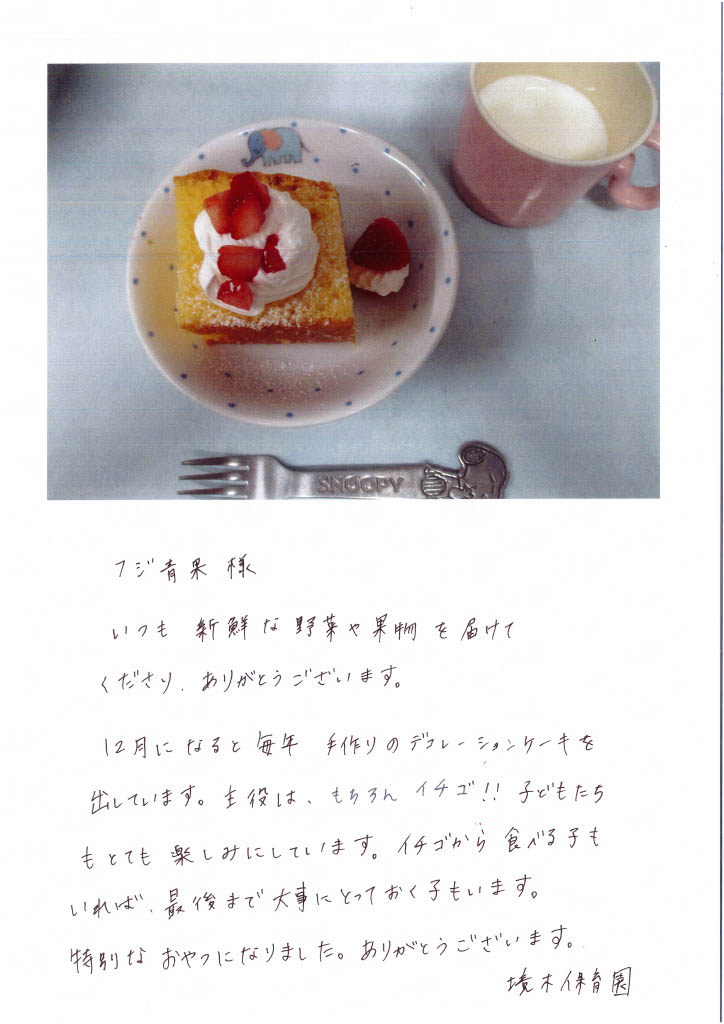 SNOOPY
フジ青果 様
いつも 新鮮な 野菜や果物 を 届けて
くださり、ありがとうございます。
12月になると 毎年 手作りのデコレーションケーキを
出しています。主役は、もちろん イチゴ!! 子どもたち
もとても 楽しみにしています。イチゴから 食べる子も
いれば、最後まで大事にとっておく子もいます。
特別な おやつになりました。ありがとうございます。
境木保育園